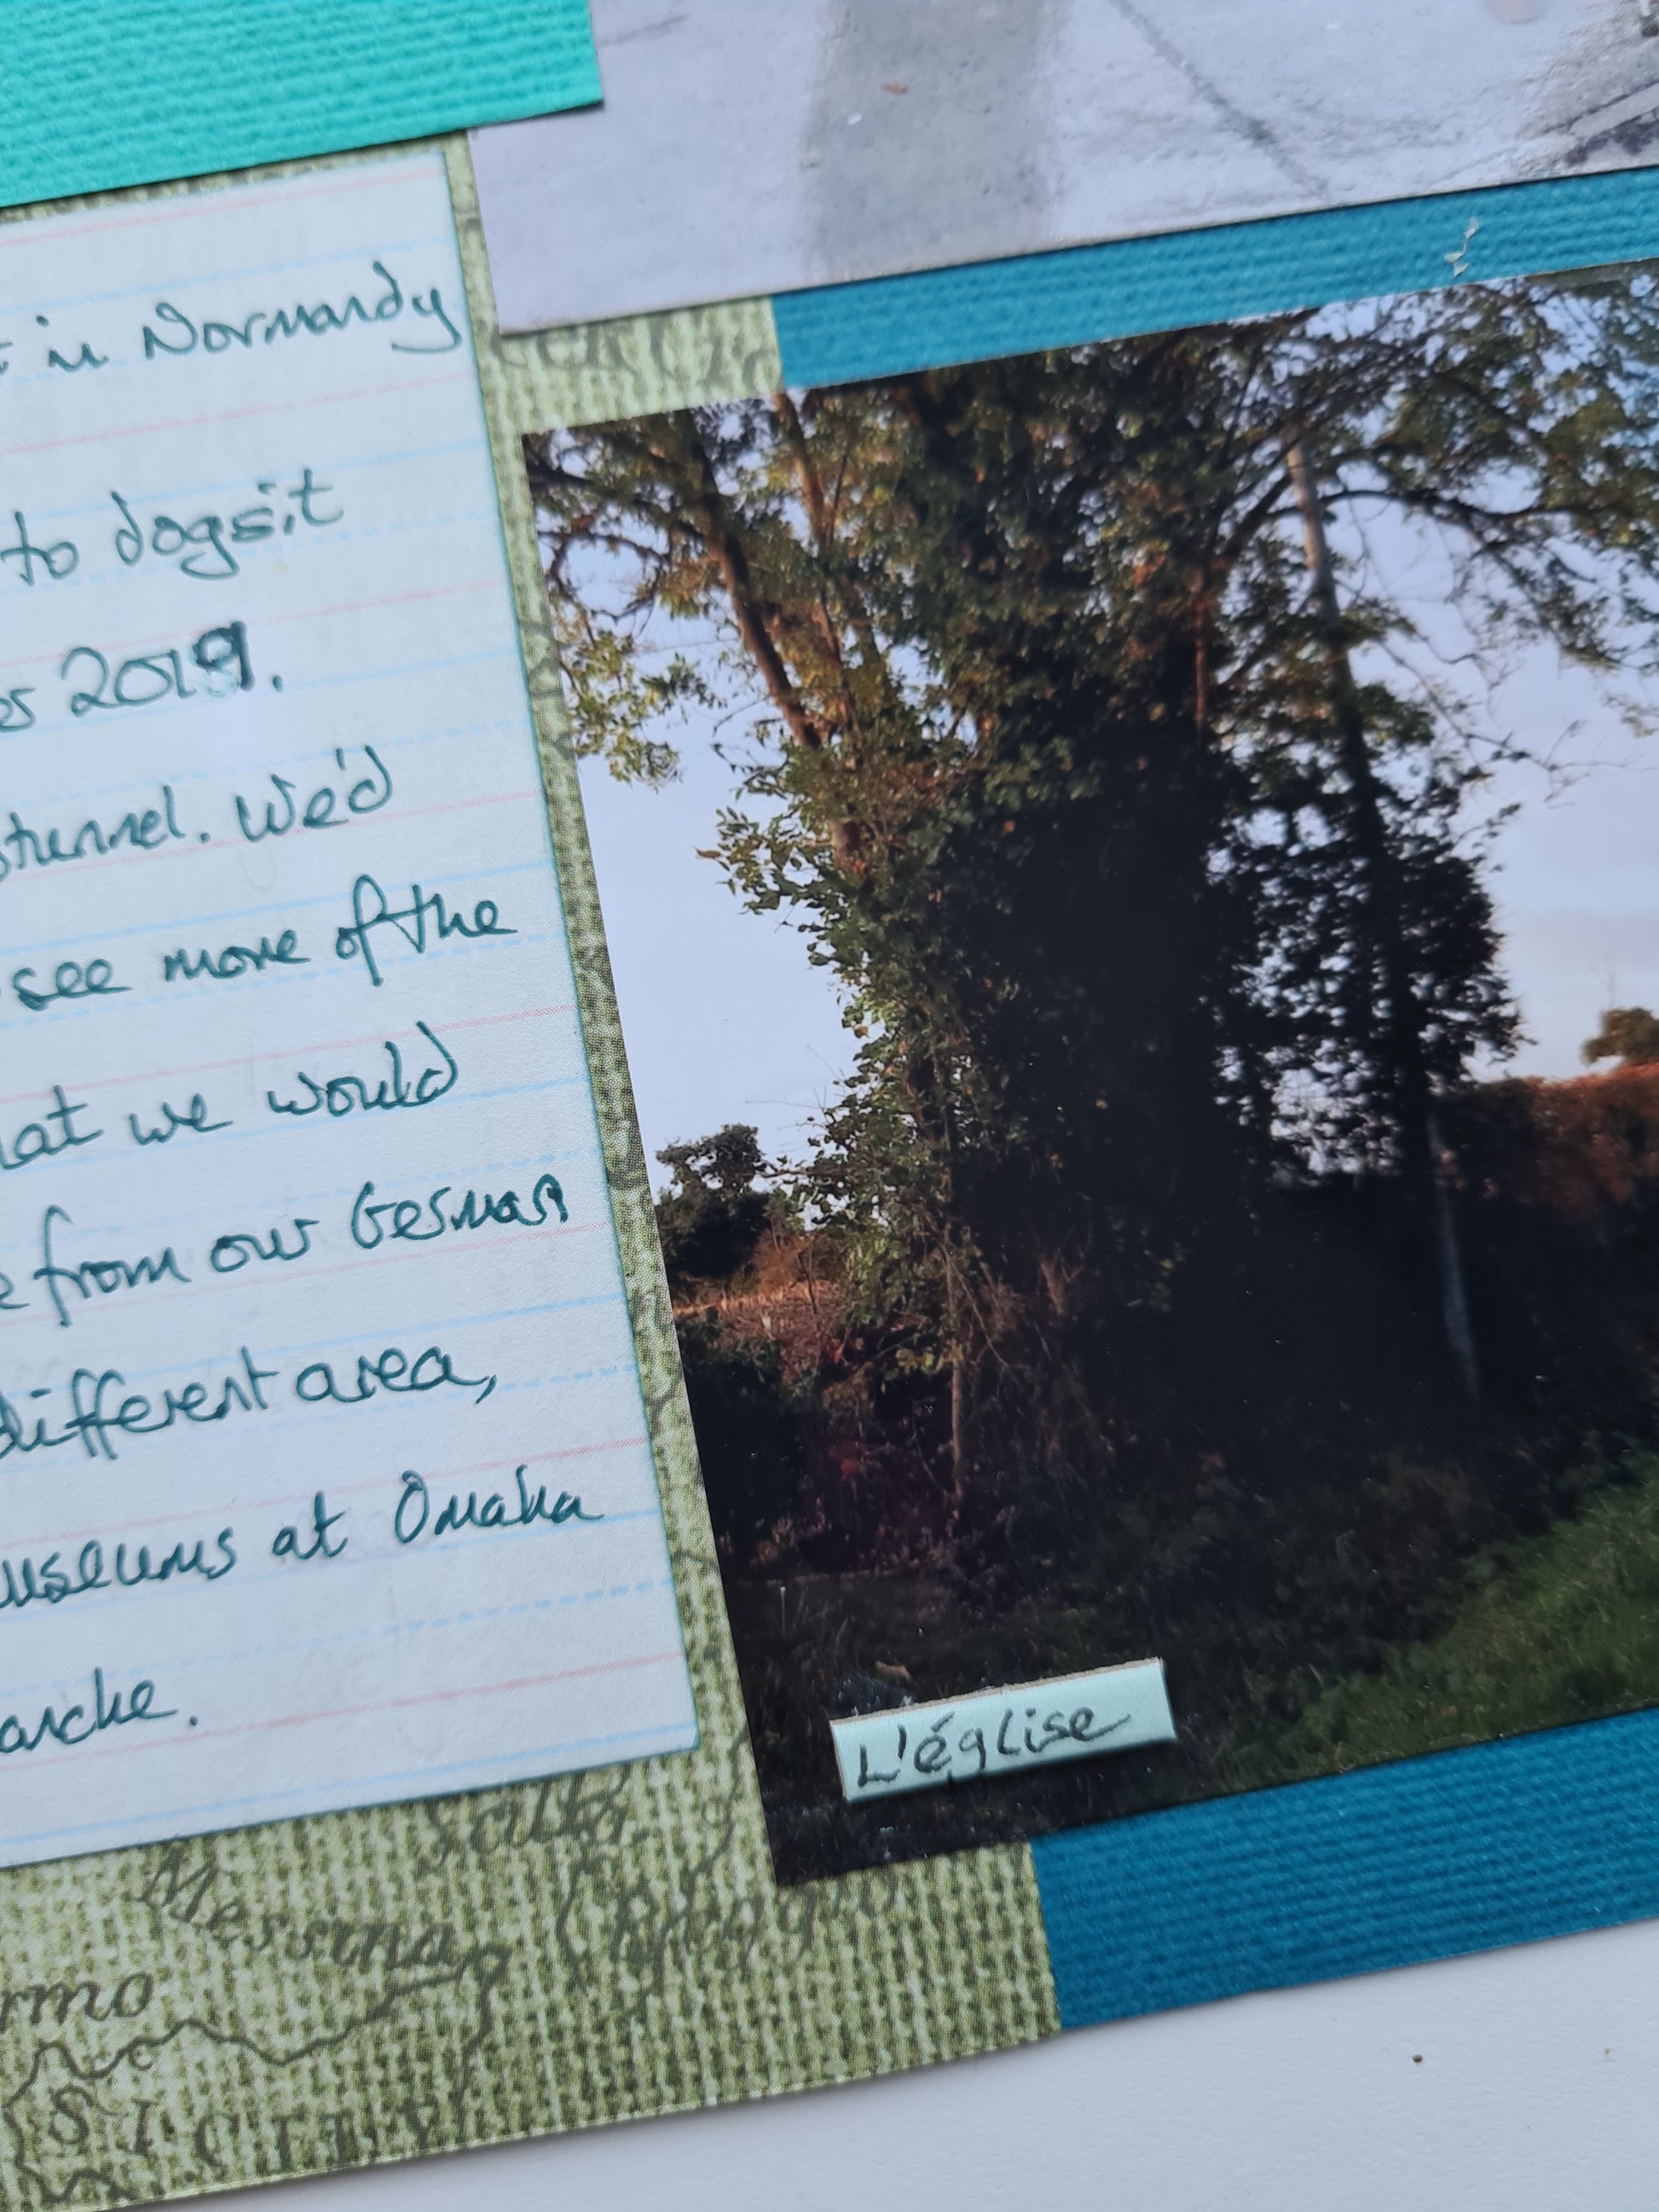 in Normandy
to dogsit
2019.
tunnel. We'd
see more of the
we would
from our German
different area,
museums at Omaha
arche.
L'église
Messina
rmo
SICILY